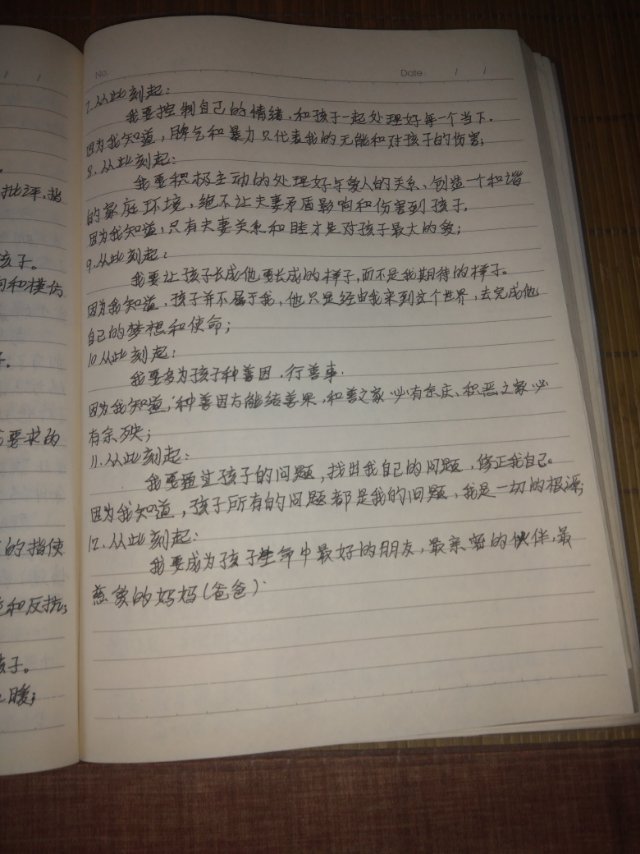 No.
Date / /
7.从此刻起:
我要控制自己的情绪,和孩子一起处理好每一个当下.
因为我知道,脾气和暴力只代表我的无能和对孩子的伤害;
8.从此刻起:
我要积极主动的处理好与家人的关系,创造一个和谐
的家庭环境,绝不让夫妻矛盾影响和伤害到孩子.
因为我知道,只有夫妻关系和睦才是对孩子最大的爱;
9.从此刻起:
我要让孩子长成他要长成的样子,而不是我期待的样子。
因为我知道,孩子并不属于我,他只是经由我来到这个世界,去完成他
自己的梦想和使命;
10.从此刻起:
我要多为孩子种善因,行善事.
因为我知道,种善因方能结善果,积善之家必有余庆、积恶之家必
有余殃;
11.从此刻起:
我要通过孩子的问题,找出我自己的问题,修正我自己。
因为我知道,孩子所有的问题都是我的问题,我是一切的根源;
12.从此刻起:
我要成为孩子生命中最好的朋友,最亲密的伙伴,最
慈爱的妈妈(爸爸)
批评,
孩子。
和模仿
子.
要求的
的指使
和反抗;
孩子。
暖;